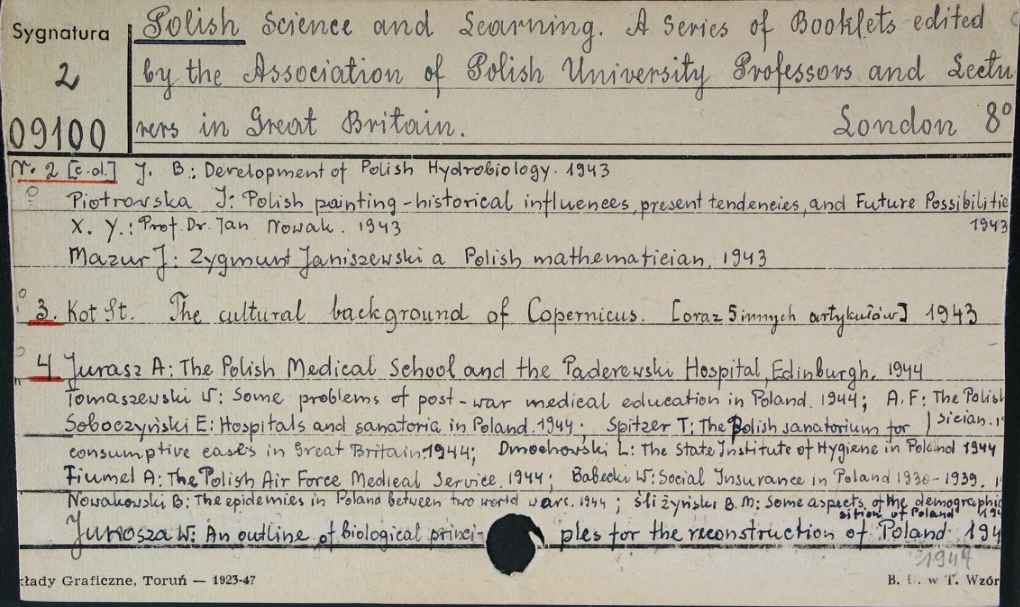 Sygnatura
2
09100
Polish Science and Learning. A Series of Booklets edited
by the Association of Polish University Professors and Lectu
rers in Great Britain.
London 8°
Nr. 2 [c.d.] J. B.: Development of Polish Hydrobiology. 1943
Piotrowska J: Polish painting-historical influences, present tendencies, and Future Possibilitie
1943
X. Y.: Prof. Dr. Jan Nowak. 1943
Mazur J: Zygmunt Janiszewski a Polish mathematician. 1943
3. Kot St. The cultural background of Copernicus. [oraz 5 innych artykułów] 1943
" 4 Jurasz A: The Polish Medical School and the Paderewski Hospital, Edinburgh. 1944
Tomaszewski W: Some problems of post-war medical education in Poland. 1944; A. F: The Polish
sician.
Soboczyński E: Hospitals and sanatoria in Poland. 1944; Spitzer T; The Polish sanatorium for
consumptive cases in Great Britain. 1944; Dmochowski L: The State Institute of Hygiene in Poland 1944
Fiumel A: The Polish Air Force Medical Service. 1944; Babecki W: Social Insurance in Poland 1930-1939.
Nowakowski B: The epidemies in Poland between two world wars. 1944; Śliżyński B. M: Some aspects of the demographic
sition of Poland 194
Junosza W: An outline of biological princi- ples for the reconstruction of Poland 194
1944
kłady Graficzne, Toruń — 1923-47
B. U. w T. Wzór